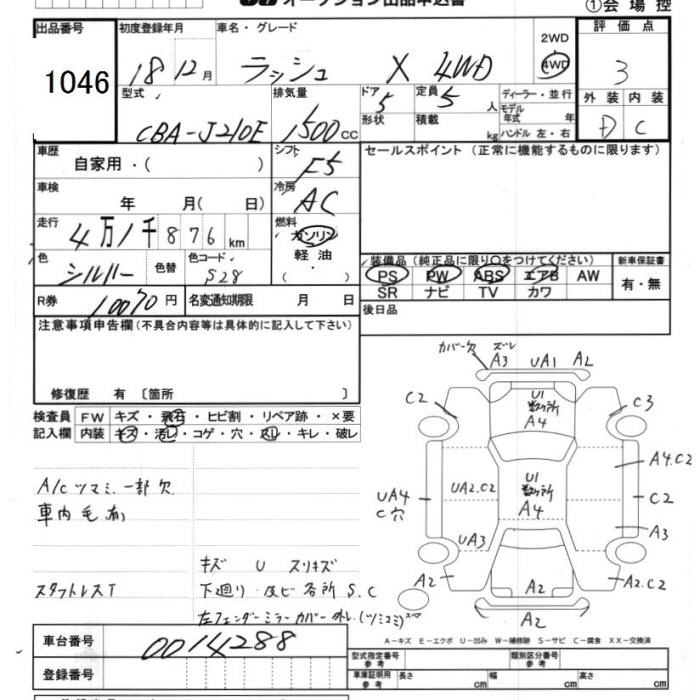 オークション出品申込書
①会場控
出品番号
1046
初度登録年月
18 12月
車名・グレード
ラッシュ X 4WD
2WD
4WD
評価点
3
外装 内装
D C
型式
CBA-J210E
排気量
1500cc
ドア 5
形状
定員 5人
積載 kg
ディーラー・並行
モデル年式 年
ハンドル 左・右
車歴
自家用・( )
シフト
F5
車検
年 月( 日)
冷房
AC
走行
4万1千876km
燃料
ガソリン
軽油
( ・ )
色
シルバー
色替
色コード
S28
R券
10070円
名変通知期限 月 日
セールスポイント(正常に機能するものに限ります)
装備品(純正品に限り○をつけてください)
PS PW ABS エアB AW
SR ナビ TV カワ
新車保証書
有・無
後日品
注意事項申告欄(不具合内容等は具体的に記入して下さい)
修復歴 有〔箇所 〕
検査員記入欄
FW キズ・飛石・ヒビ割・リペア跡・×要
内装 キズ・汚レ・コゲ・穴・スレ・キレ・破レ
A/Cツマミ一部欠
車内毛有
スタットレスT
キズ U スリキズ
下廻り・及ビ各所S.C
左フェンダーミラーカバー外レ(ツミコミ)
カバー欠 ズレ
A3 UA1 A2
C2
U1
数ヶ所
A4
C3
UA4
C穴
UA2.C2
U1
数ヶ所
A4
A4.C2
C2
UA3
A3
A2
A2
A2.C2
A2
スペア
A-キズ E-エクボ U-凹み W-補修跡 S-サビ C-腐食 XX-交換済
車台番号
0014288
登録番号
型式指定番号
参考
類別区分番号
参考
車庫証明用
参考
長さ cm
幅 cm
高さ cm